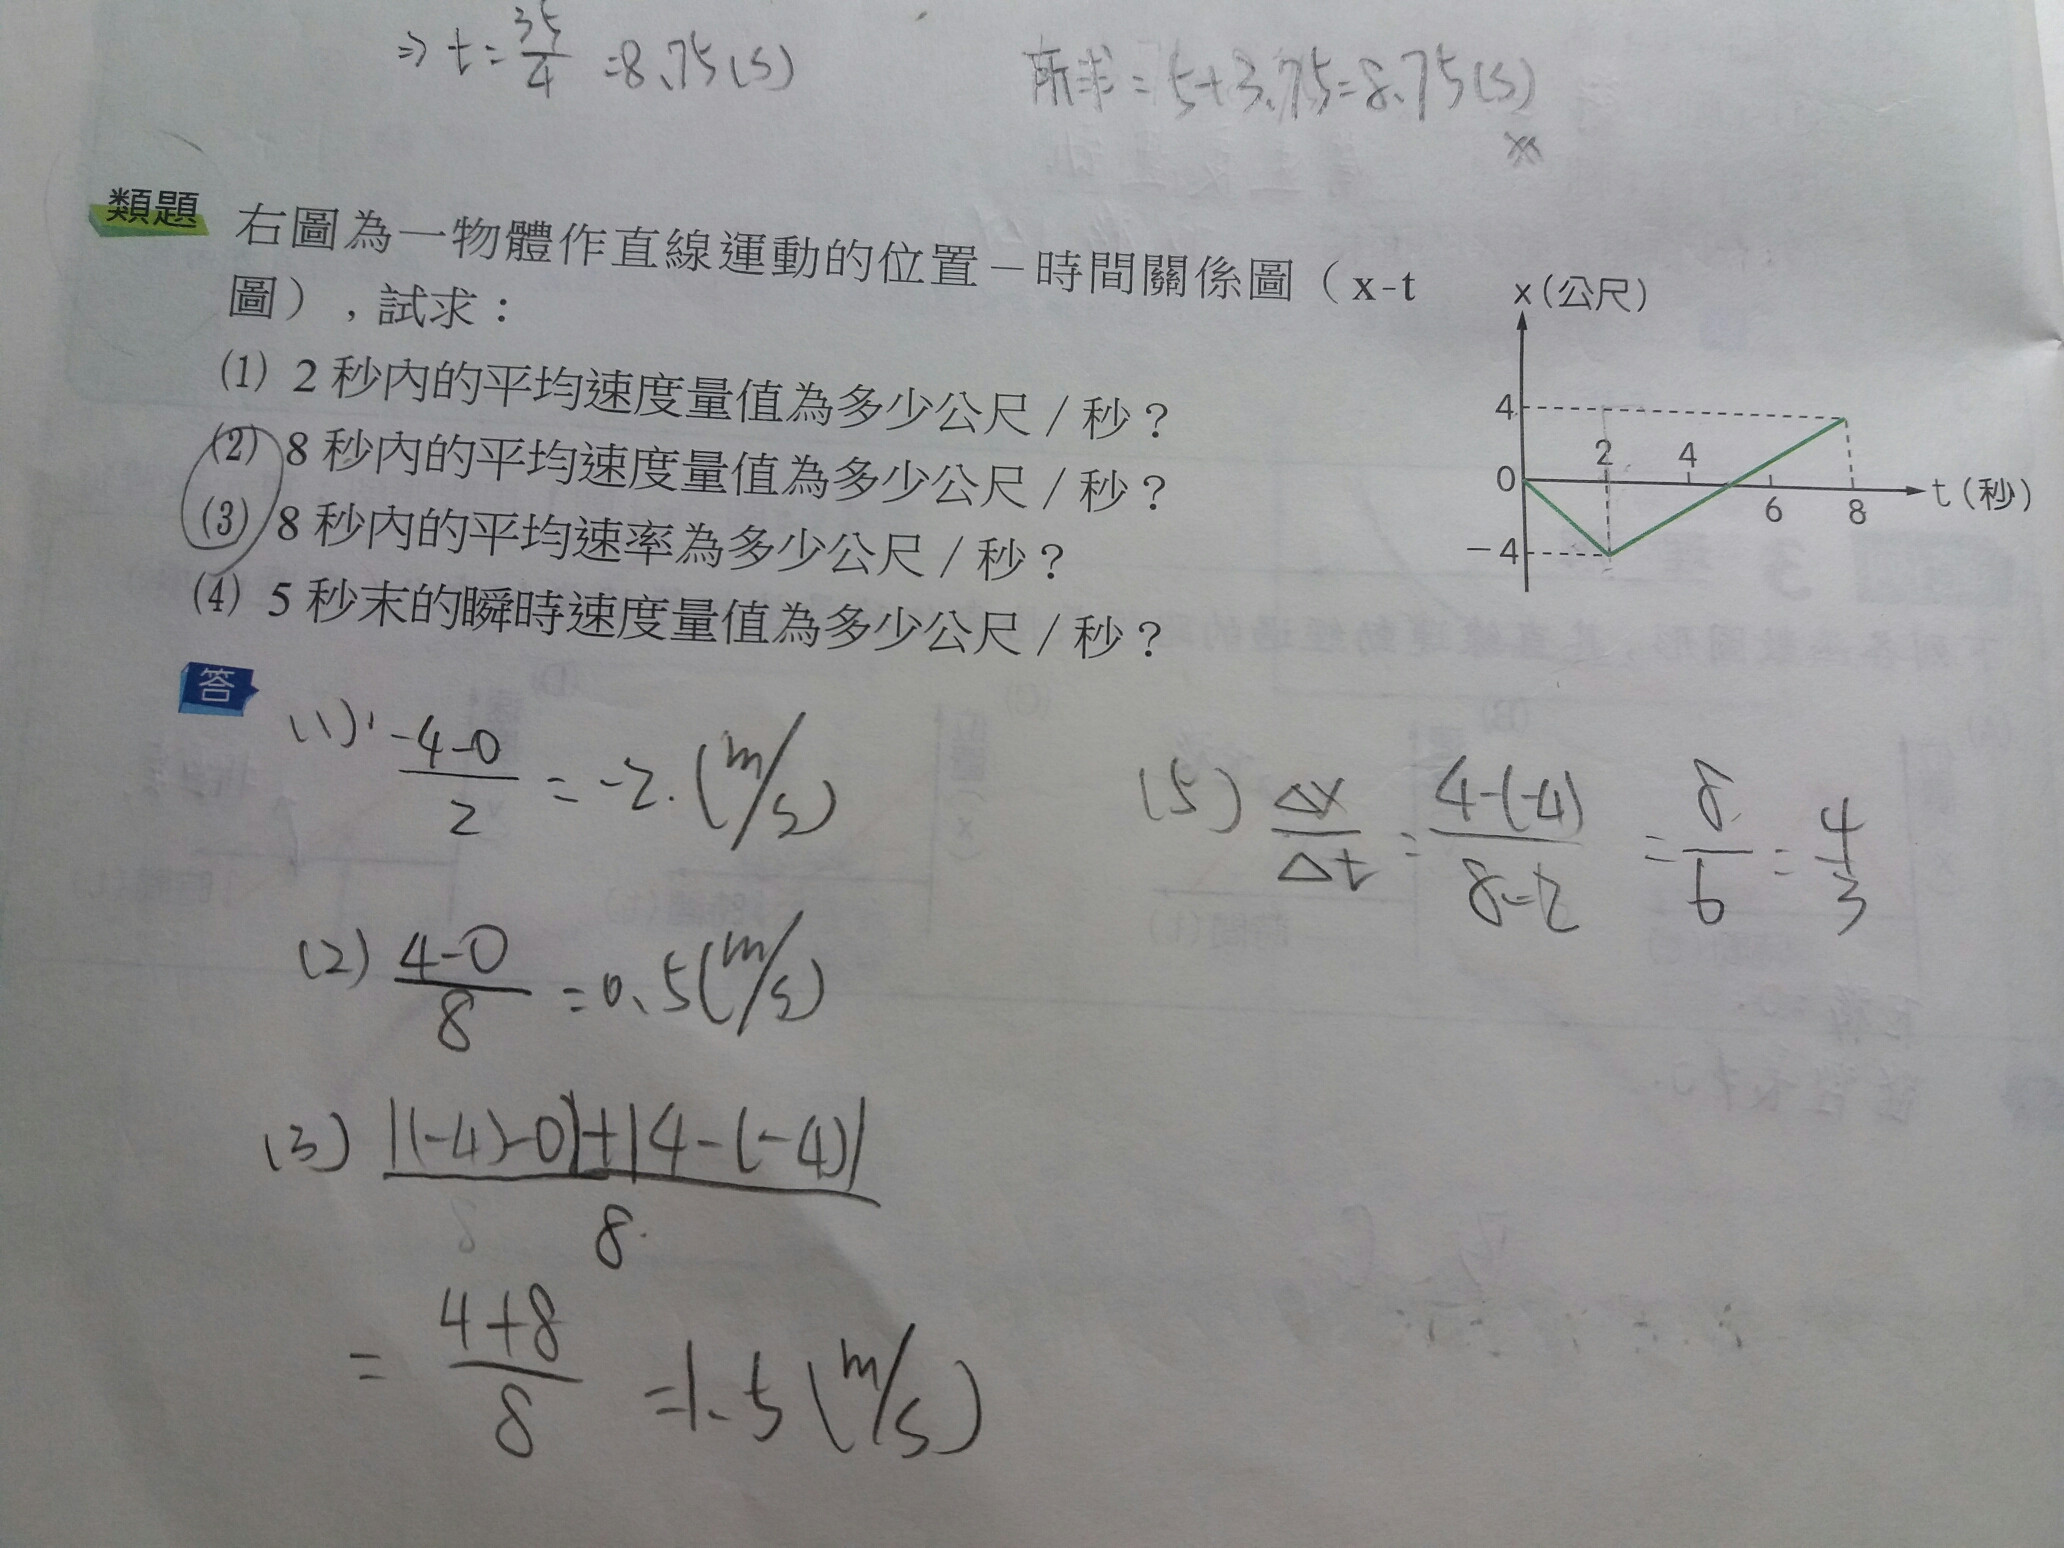 ⇒ t = 35/4 = 8.75 (s)
所求 = 5+3.75 = 8.75 (s)
類題
右圖為一物體作直線運動的位置－時間關係圖（x-t
圖），試求：
(1) 2 秒內的平均速度量值為多少公尺／秒？
(2) 8 秒內的平均速度量值為多少公尺／秒？
(3) 8 秒內的平均速率為多少公尺／秒？
(4) 5 秒末的瞬時速度量值為多少公尺／秒？
x(公尺)
4
2 4
0
6 8
t(秒)
－4
答
(1) -4-0/2 = -2. (m/s)
(2) 4-0/8 = 0.5 (m/s)
(3) |(-4)-0|+|4-(-4)|/8
= 4+8/8 = 1.5 (m/s)
(5) Δx/Δt = 4-(-4)/8-2 = 8/6 = 4/3